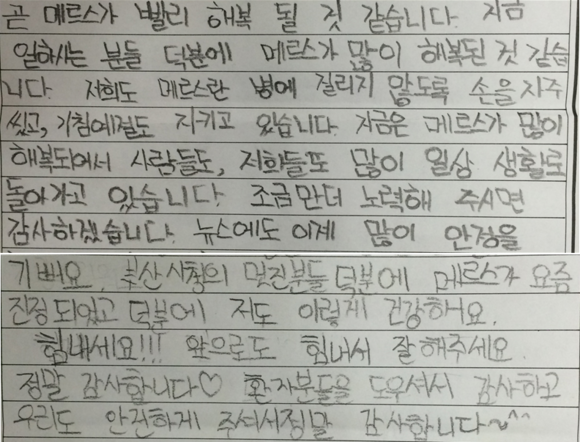 곧 메르스가 빨리 해복 될 것 같습니다. 지금
일하시는 분들 덕분에 메르스가 많이 해복된 것 같습
니다. 저희도 메르스란 병에 질리지 않도록 손을 자주
씻고, 기침예절도 지키고 있습니다. 지금은 메르스가 많이
해복되어서 사람들도, 저희들도 많이 일상 생활로
돌아가고 있습니다. 조금만더 노력해 주시면
감사하겠습니다. 뉴스에도 이제 많이 안정을
기뻐요. 부산시청의 멋진분들 덕분에 메르스가 요즘
진정되었고 덕분에 저도 이렇게 건강하어요.
힘내세요!!! 앞으로도 힘내서 잘해주세요.
정말 감사합니다♡ 환자분들을 도우셔서 감사하고
우리도 안전하게 주셔서정말 감사합니다~^^